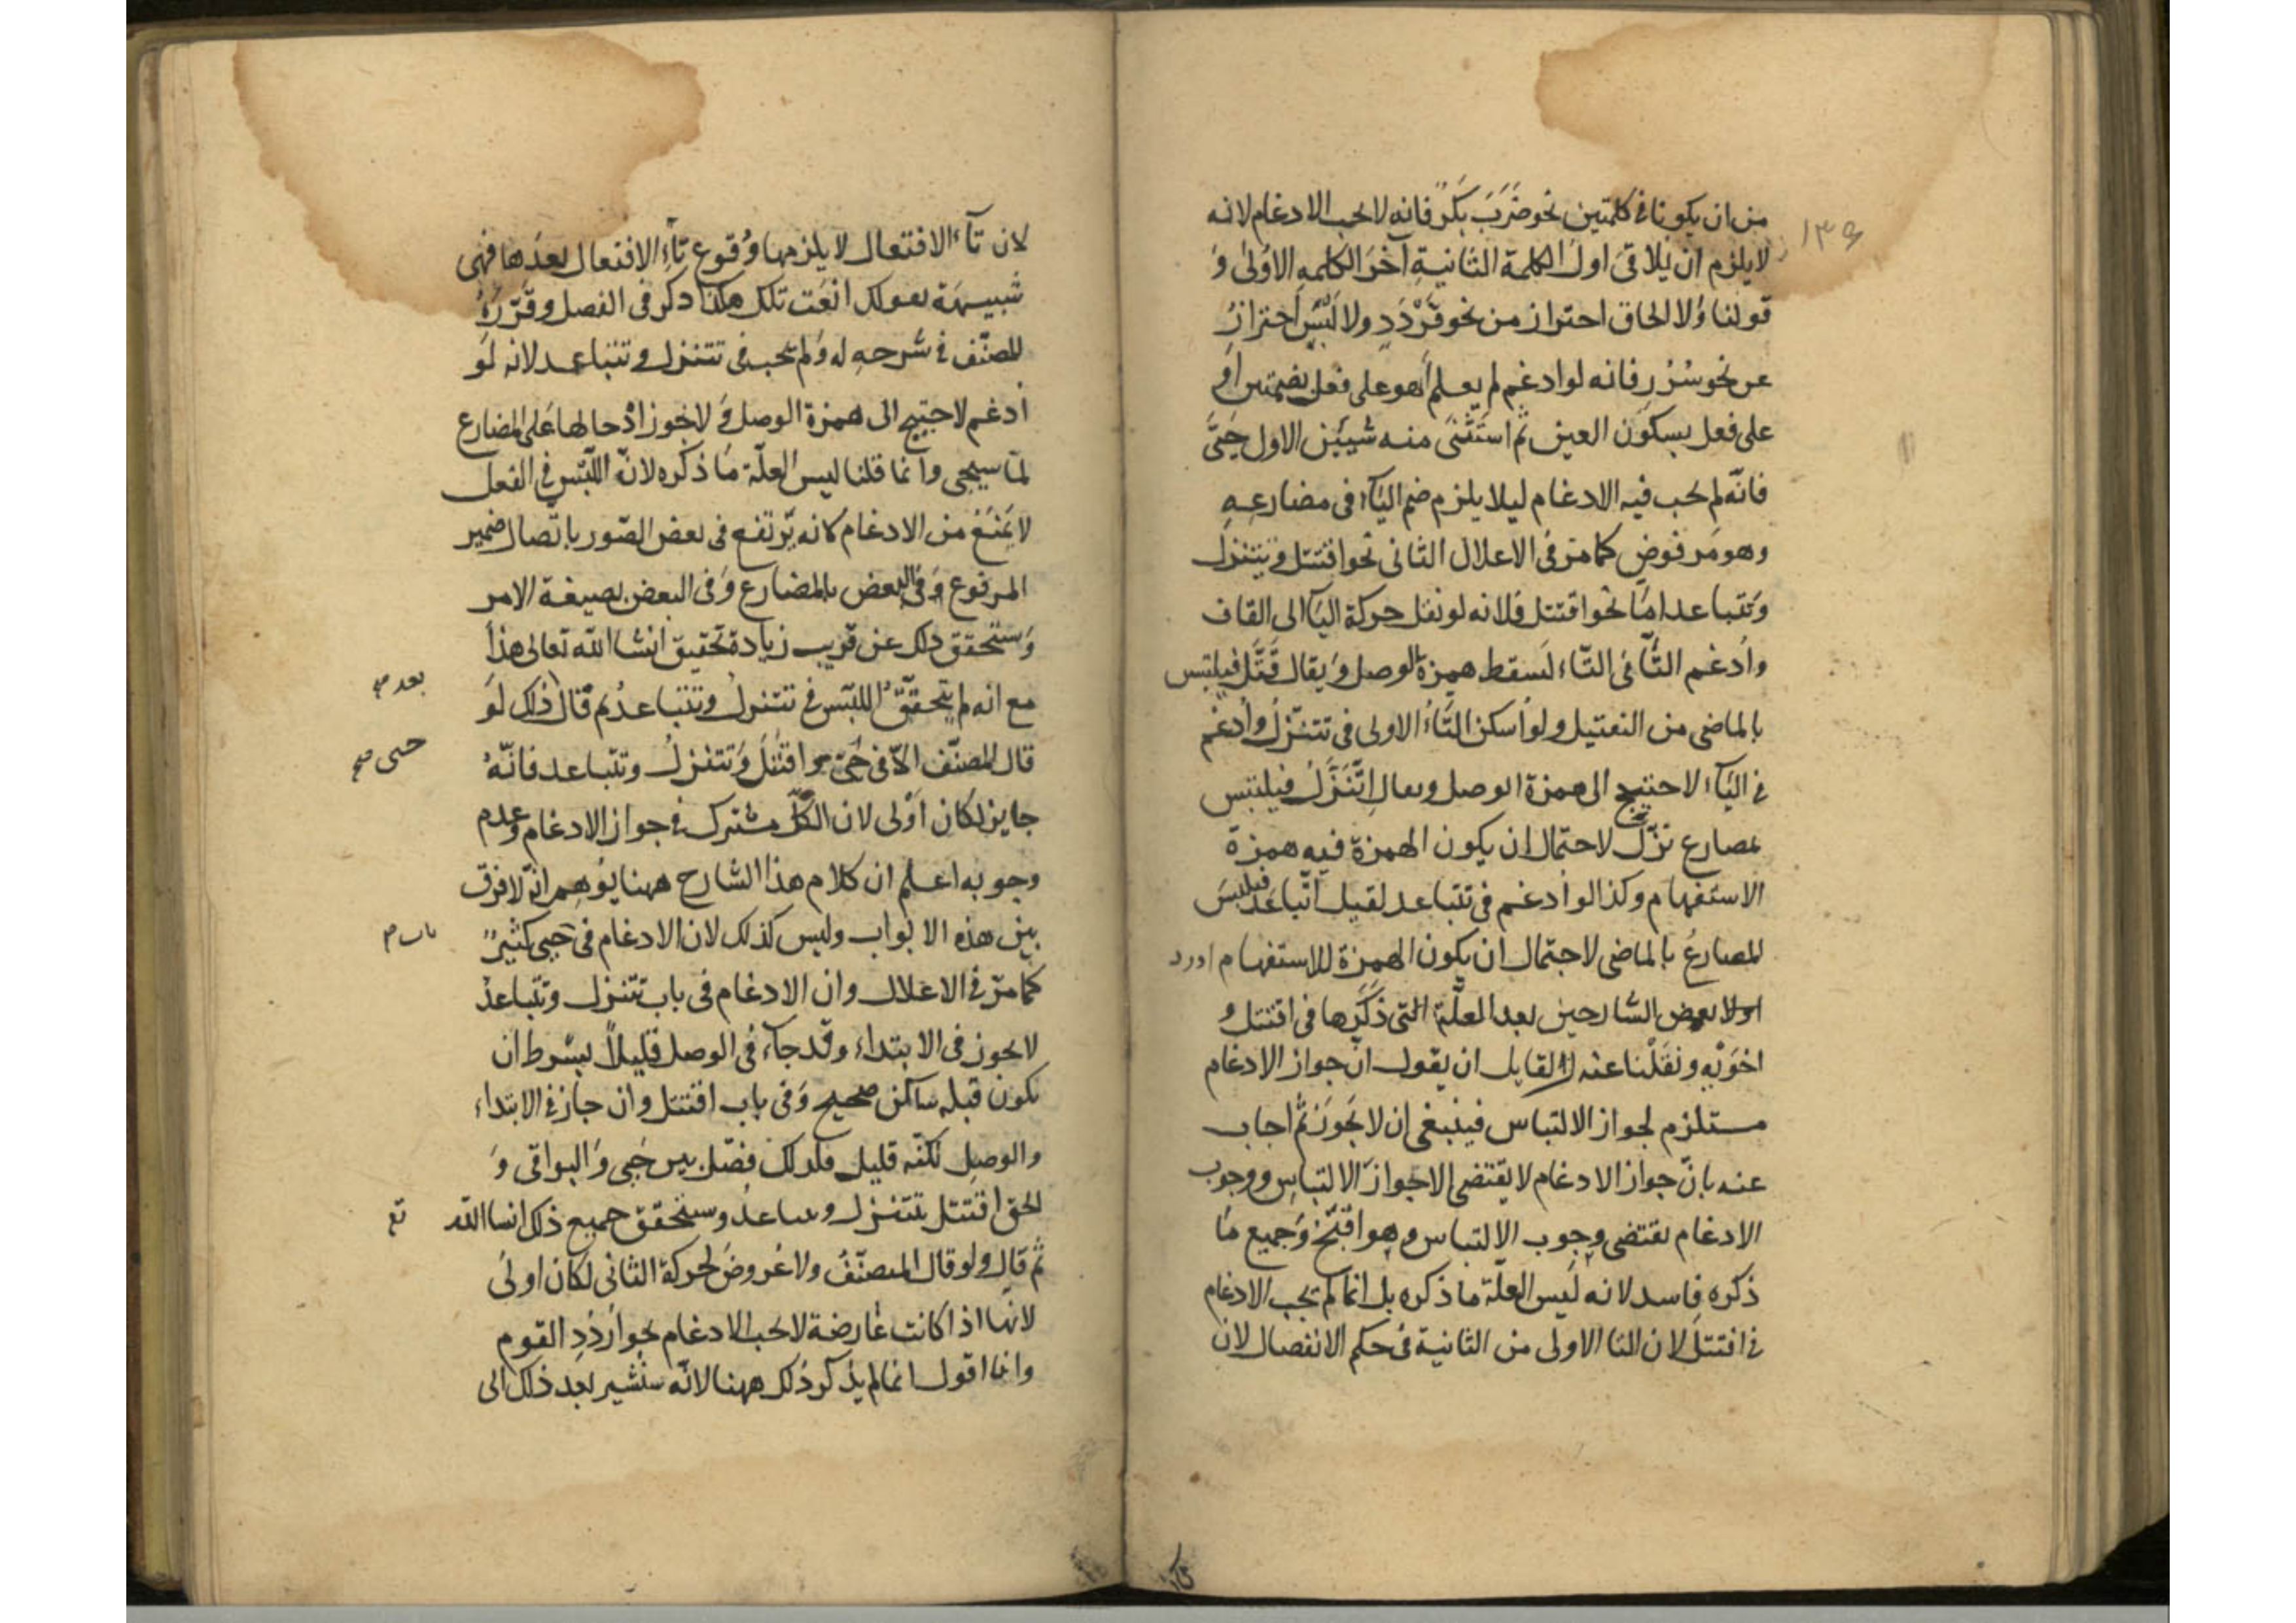 ١٣٦
من ان يكونا فى كلمتين نحو ضَرَبَ بَكرٌ فانه لا يجب الادغام لانه
لا يلزم ان يلاقى اول الكلمة الثانيةِ آخرَ الكلمه الاوُلىٰ وَ
قولنا وَلا الحاق احتراز من نحو قَرْدَدٍ ولا لَبْسَ احترازٌ
عن نحو سُرُرٍ فانه لو ادغم لم يعلم أهو على فعل بضمتين اَو
على فعل بسكون العين ثم استثنى منه شيئين الاول حَيىَ
فانّه لم يجب فيه الادغام ليلا يلزم ضم الياء فى مضارعِهِ
وهو مرفوض كما مرّ فى الاعلال الثانى نحو اقتتل و تتنزل
وتتباعد امّا نحو اقتتل فلانه لو نقل حركة التا الى القاف
واُدغم التّا فى التّاء لسقط همزة الوصل وَيقال قَتَّل فيلتبس
بالماضى من التفتيل ولو اُسكن التّاءُ الاولى فى تتنزّلُ واُدغم
فى التاء لاحتيج الى همزة الوصل ويقال اِتَّنَزَّلُ فيلتبس
بمضارع نزّل لاحتمال ان يكون الهمزة فيه همزة
الاستفهام وكذا لو اُدغم فى تتباعد لقيل اتّباعَد فيلتبسَ
المضارعُ بالماضى لاحتمال ان يكون الهمزة للاستفهام اورد
اولا بعض الشّارحين بعد العلّة التى ذكرَها فى اقتتل و
اخوَيْهِ ونقلْناعنه لقايل ان يقول انّ جواز الادغام
مستلزم لجواز الالتباس فينبغى ان لا يَجُوزَ ثُم اجاب
عنه بانّ جواز الادغام لا يقتضى الا جوازَ الالتباسِ ووجوب
الادغام يقتضى وجوب الالتباس وهو اقبَح وَجميع مَا
ذكره فاسد لانه لَيس العلّة ما ذكره بل انما لم يجب الادغام
فى اقتتل لان التا الاولى من الثانية فى حكم الانفصال لان
لان تآءَ الافتعال لا يلزمها وُقوع تَآءِ الافتعال بعدَها فهى
شبيهَة بقولك انعَت تلك هكذا ذكر فى الفصل وقَرّرَهُ
المصنّف فى شرحهِ له وَلم يجب فى تتنزل و تتباعد لانه لَو
اُدغم لاحتيج الى همزة الوصل وَ لا يجوز ادْخالها عَلى المضارع
لمَا سيجى وانما قلنا ليس العلّة مَا ذكره لانّ اللَّبْس فى الفعل
لا يَمْنَعُ من الادغام كانه يَرتفع فى بعض الصّور باتّصال ضمير
المرفوع وَفى البعض بالمضارع وَفى البعض بصيغة الامر
وَستحقق ذلك عن قريب زيادة تحقيق انشا الله تعالى هذَا
مع انه لم يتحقّق اللبْس فى تتنزلُ وتتباعدُ ثم قَال ذلك لَو
بعد صح
قال المصنّف الّا فى حَيىَ واقتتَلَ وَتتنزلُ وتتباعد فانّهُ
حيى صح
جايز لكان اَوْلى لان الكلّ مشترك فى جواز الادغام وعدم
وجوبه اعلم ان كلام هذا الشارح ههنا يوُهِم انّه لا فرق
بين هذه الابواب وليس كذلك لان الادغام فى حَيىَ كثيرٌ
باب م
كما مرّ فى الاعلال وان الادغام فى باب تتنزل وتتباعدْ
لا يجوز فى الابتداء وقد جاء فى الوصل قليلًا بشرط ان
يكون قبله ساكن صحيح وَفى باب اقتتل وان جاز فى الابتداء
والوصلِ لكنّه قليل فلذلك فصّل بين حَيىَ وَالبواقى وَ
الحق اقتتل بتتنزل وتتباعدُ وستحقق جميع ذلك انشا الله
تع
ثم قال ولو قال المصنّفُ ولا عُروضَ لحركة الثانى لكان اولىَ
لانها اذا كانت عَارضة لا يجب الادغام نحو اُردُدِ القوم
وانا اقول انما لم يذكر ذلك ههنا لانّه سنشير بعد ذلك الى